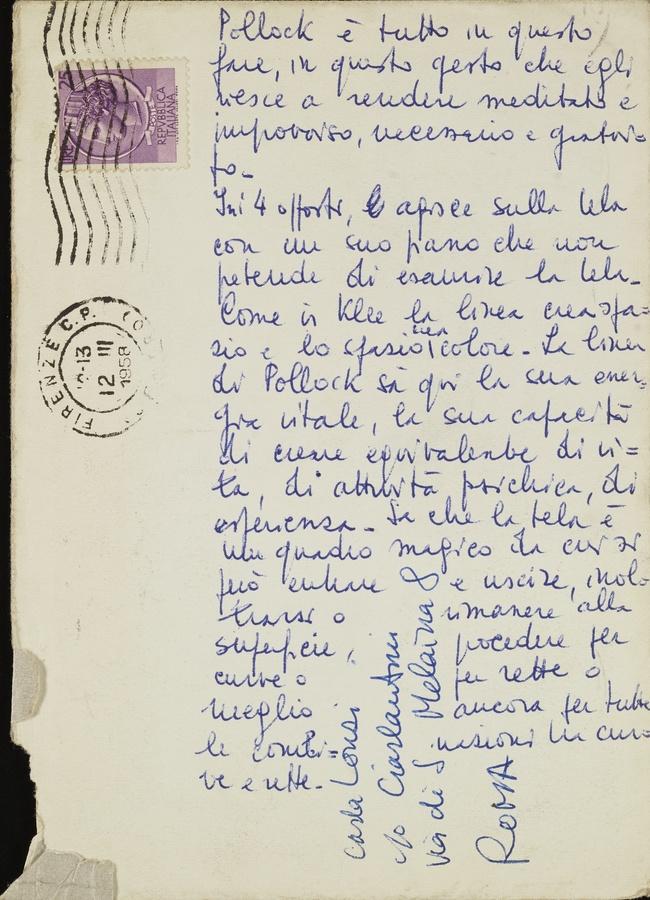 Pollock è tutto in questo
fare, in questo gesto che egli
riesce a rendere meditato e
improvviso, necessario e gratui-
to-
In 4 opposti, agisce sulla tela
con un suo piano che non
pretende di esaurire la tela-
Come in Klee la linea crea spa=
zio e lo spazio crea colore - La linea
di Pollock sa qui la sua ener-
gia vitale, la sua capacità
di creare equivalente di vi=
ta, di attività psichica, di
esperienza - Sa che la tela è
un quadro magico da cui si
può entrare e uscire, inol-
trarsi o rimanere alla
superficie, procedere per
curve o per rette o
meglio ancora per tutte
le combi= nazioni tra cur=
ve e rette-
Carla Lonzi
c/o Ciarlantini
via di S Melania 8
ROMA
POSTE ITALIANE
REPUBBLICA ITALIANA
FIRENZE C.P.
12-13
12 III
1958